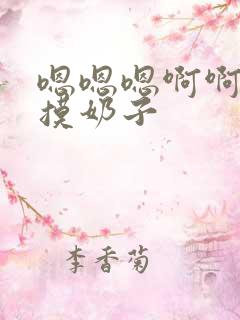 嗯嗯嗯啊啊
摸奶子
李香菊